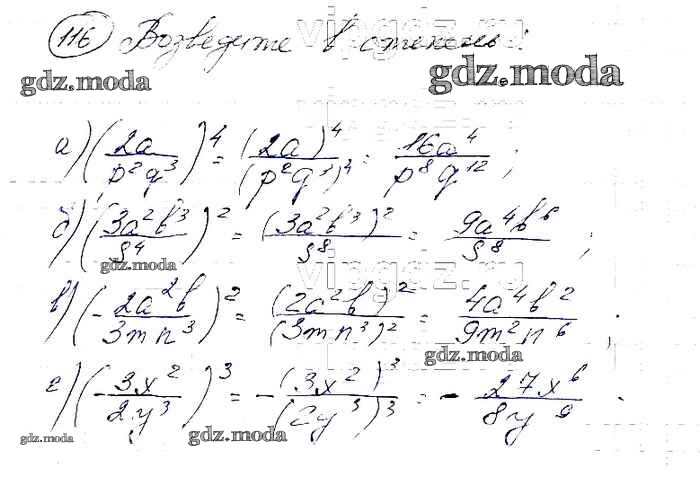 116 Возведите в степень
gdz.moda
gdz.moda
а) (2a / p²q³)⁴ = (2a)⁴ / (p²q³)⁴ = 16a⁴ / p⁸q¹² ;
б) (3a²b³ / S⁴)² = (3a²b³)² / S⁸ = 9a⁴b⁶ / S⁸ ;
gdz.moda
в) (- 2a²b / 3mn³)² = (2a²b)² / (3mn³)² = 4a⁴b² / 9m²n⁶ ;
gdz.moda
г) (- 3x² / 2y³)³ = - (3x²)³ / (2y³)³ = - 27x⁶ / 8y⁹ .
gdz.moda
gdz.moda